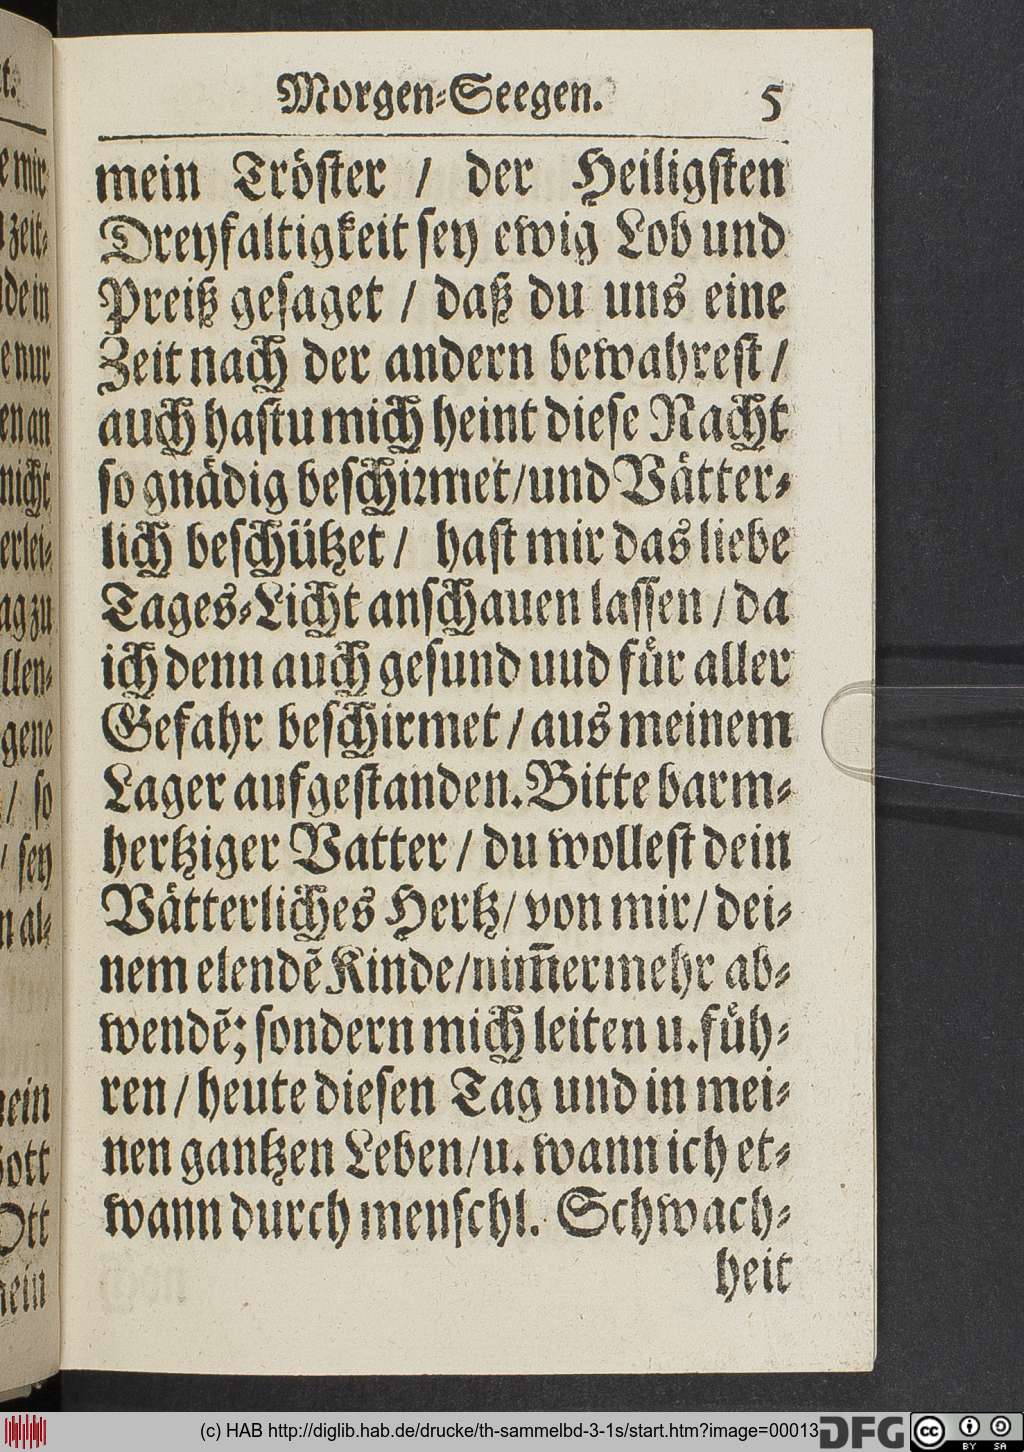 Morgen-Seegen. 5
mein Tröster / der Heiligsten
Dreyfaltigkeit sey ewig Lob und
Preiß gesaget / daß du uns eine
Zeit nach der andern bewahrest /
auch hastu mich heint diese Nacht
so gnädig beschirmet / und Vätter-
lich beschützet / hast mir das liebe
Tages-Licht anschauen lassen / da
ich denn auch gesund uud für aller
Gefahr beschirmet / aus meinem
Lager aufgestanden. Bitte barm-
hertziger Vatter / du wollest dein
Vätterliches Hertz / von mir / dei-
nem elendē Kinde / nim̄ermehr ab-
wendē; sondern mich leiten u. füh-
ren / heute diesen Tag und in mei-
nen gantzen Leben / u. wann ich et-
wann durch menschl. Schwach-
heit
e mir
zeit-
de in
e nur
en an
nicht
erlei-
ag zu
llen-
gene
/ so
/ sey
n al-
nein
Gott
Ott
nein
(c) HAB http://diglib.hab.de/drucke/th-sammelbd-3-1s/start.htm?image=00013
DFG
cc
BY SA